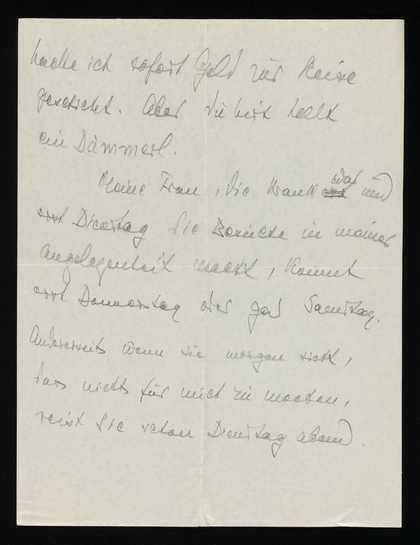 hätte ich sofort Geld zur Reise
geschickt. Aber Du bist halt
ein Dämmerl.
Meine Frau, die krank war und
erst Dienstag die Besuche in meiner
Angelegenheit macht, kommt
erst Donnerstag oder gar Samstag.
Andererseits wenn sie morgen sieht,
dass nichts für mich zu machen,
reist sie schon Dienstag abend.